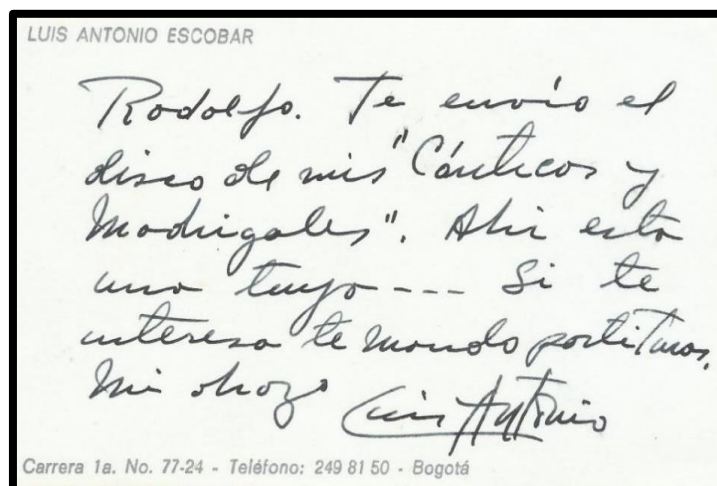 LUIS ANTONIO ESCOBAR
Rodolfo. Te envío el
disco de mis "Cánticos y
Madrigales". Ahi esta
uno tuyo --- Si te
interesa te mando partituras.
Mi abrazo Luis Antonio
Carrera 1a. No. 77-24 - Teléfono: 249 81 50 - Bogotá